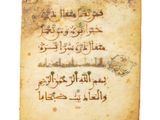 فمن يعمل مثقال ذرة
خيرا يره ومن يعمل
مثقال ذرة شرا يره
بسم الله الرحمن الرحيم
والعاديات ضبحا